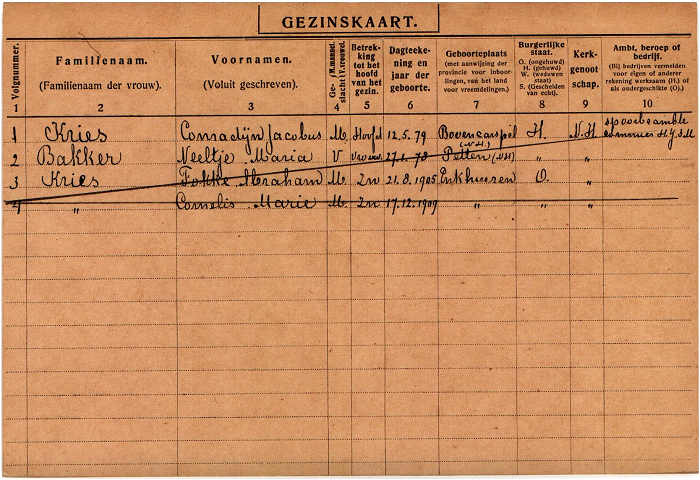 GEZINSKAART.
Volgnummer. Familienaam. (Familienaam der vrouw). Voornamen. (Voluit geschreven). Ge- (M.mannel. slacht (V.vrouwel. Betrek- king tot het hoofd van het gezin. Dagteeke- ning en jaar der geboorte. Geboorteplaats (met aanwijzing der provincie voor inboor- lingen, van het land voor vreemdelingen.) Burgerlijke staat. O. (ongehuwd) H. (gehuwd) W. (weduwen staat) S. (Gescheiden van echt). Kerk- genoot schap. Ambt, beroep of bedrijf. (Bij bedrijven vermelden voor eigen of anderer rekening werkzaam (H.) of als ondergeschikte (O.)
1 2 3 4 5 6 7 8 9 10
1 Kries Conradijn Jacobus M. Hoofd 12.5.79 Bovencarspel (N.H.) H. N.H. spoorbeambte commies H.IJ.S.M
2 Bakker Neeltje Maria V Vrouw 27.1.78 Petten (NH) " "
3 Kries Fokke Abraham M. Zn 21.8.1905 Enkhuizen O. "
4 " Cornelis Marie M. Zn 17.12.1909 " " "